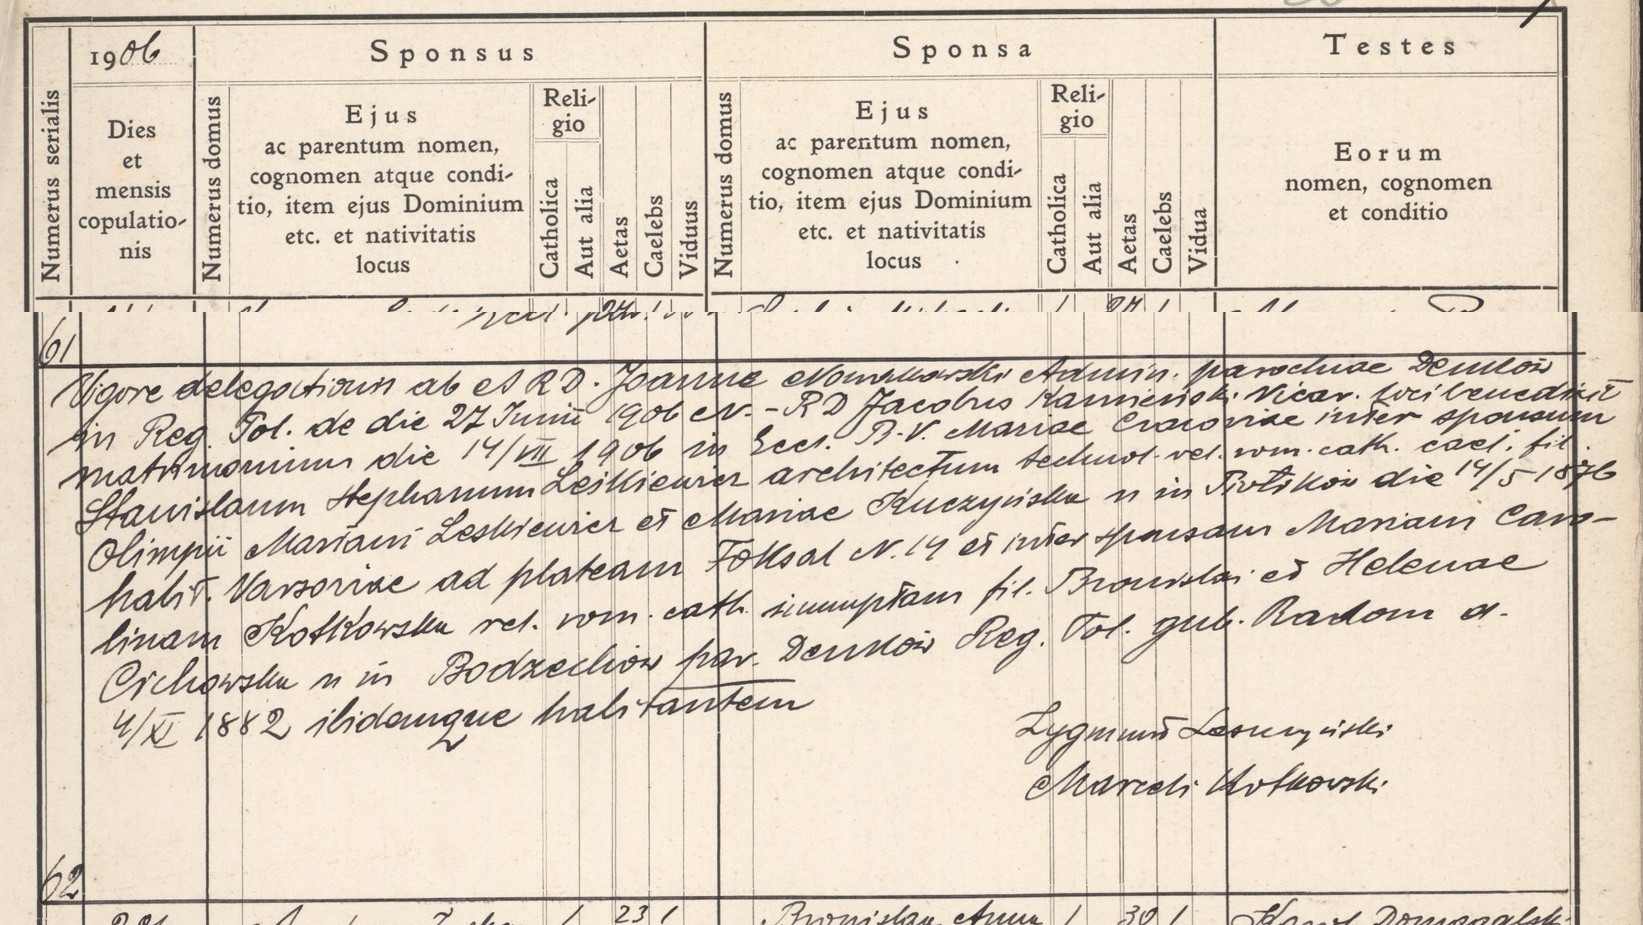 1906
Sponsus
Sponsa
Testes
Numerus serialis
Dies
et
mensis
copulatio-
nis
Numerus domus
Ejus
ac parentum nomen,
cognomen atque condi-
tio, item ejus Dominium
etc. et nativitatis
locus
Reli-
gio
Catholica
Aut alia
Aetas
Caelebs
Viduus
Numerus domus
Ejus
ac parentum nomen,
cognomen atque condi-
tio, item ejus Dominium
etc. et nativitatis
locus
Reli-
gio
Catholica
Aut alia
Aetas
Caelebs
Vidua
Eorum
nomen, cognomen
et conditio
61
Vigore delegationis ab A R D. Joanne Admin. parochiae Denków
in Reg. Pol. de die 27 Junii 1906 N. - R D Jacobus Kamieński Vicar. loci benedixit
matrimonium die 14/VII 1906 in Eccl. B. V. Mariae Cracoviae inter sponsum
Stanislaum Stephanum Leskiewicz architectum technol. rel. rom. cath. cael. fil.
Olimpii Mariani Leskiewicz et Mariae Kuczyńska n in die 14/5 1876
habit. Varsoviae ad plateam Foksal N. 14 et inter sponsam Mariam Caro-
linam Kotkowska rel. rom. cath. innuptam fil. Bronislai et Helenae
Cichowska n in Bodzechów par. Denków Reg. Pol. gub. Radom d.
4/XI 1882 ibidemque habitantem
Zygmunt
Marceli Kotkowski
62
23 1
Bronislava Anna 1 30 1
Karol Domagalski